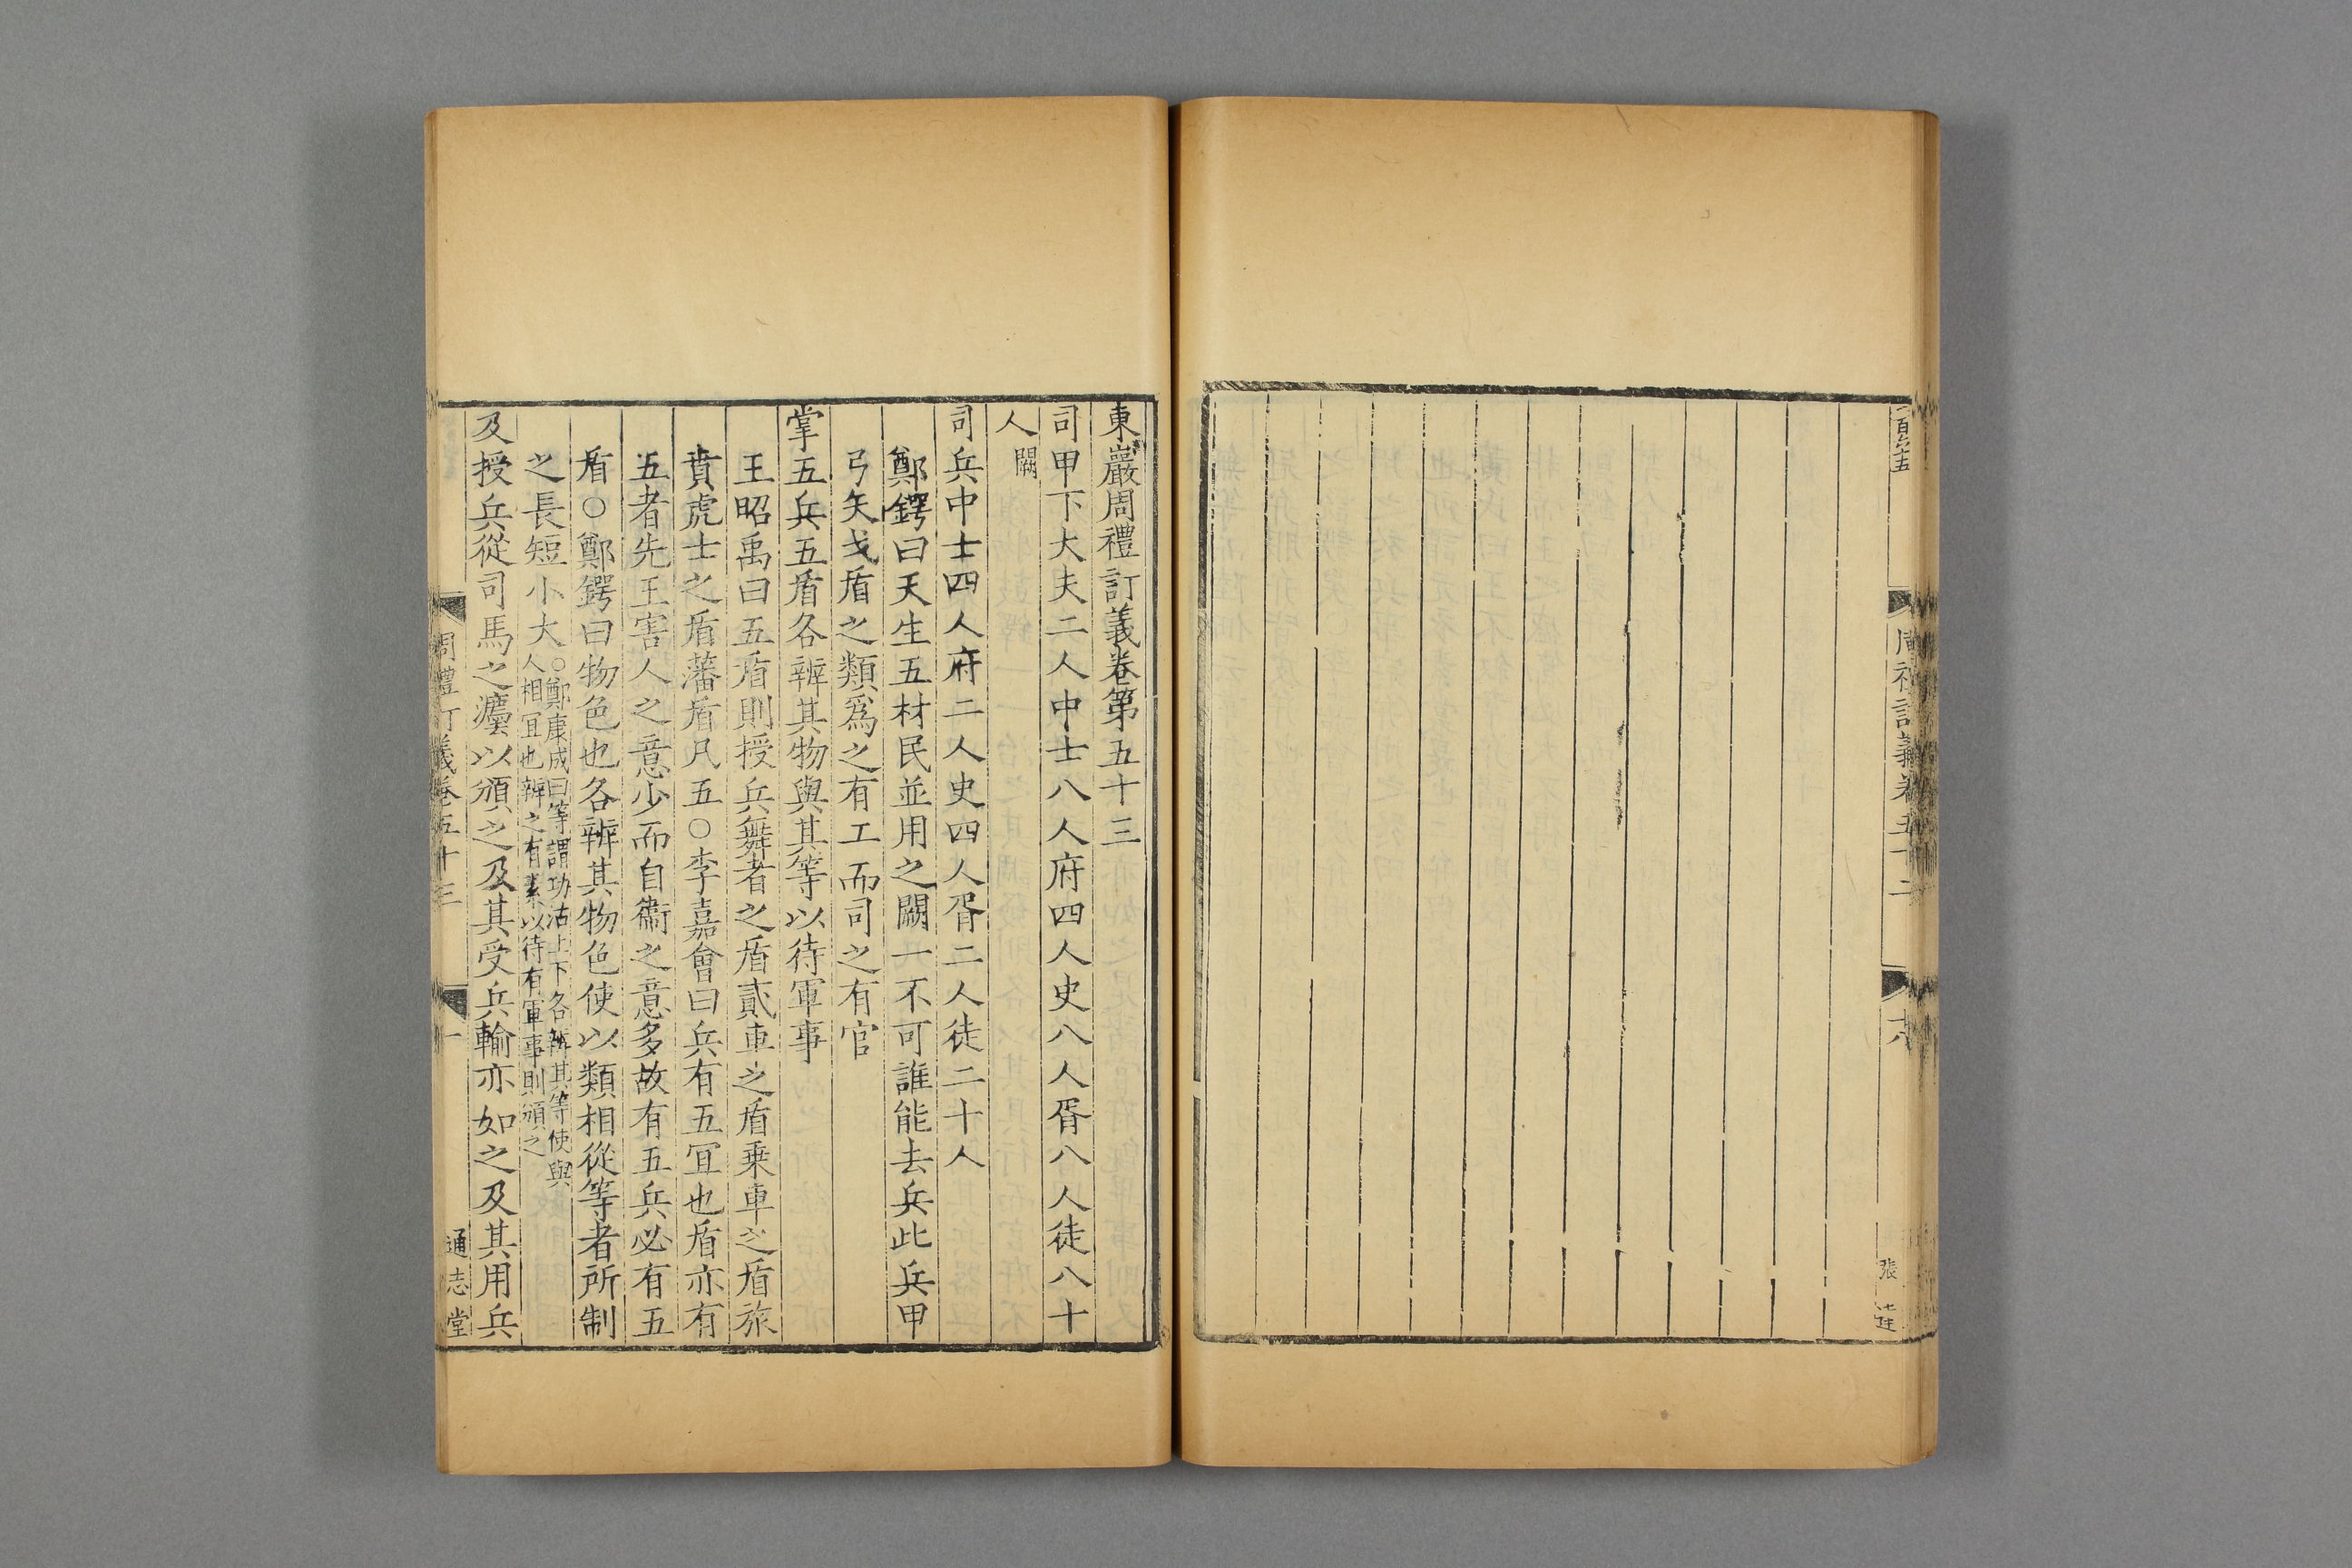 周禮訂義卷五十二
十八
張達
東巖周禮訂義卷第五十三
司甲下大夫二人中士八人府四人史八人胥八人徒八十
人闕
司兵中士四人府二人史四人胥二人徒二十人
鄭鍔曰天生五材民並用之闕一不可誰能去兵此兵甲
弓矢戈盾之類爲之有工而司之有官
掌五兵五盾各辨其物與其等以待軍事
王昭禹曰五盾則授兵舞者之盾貳車之盾乗車之盾旅
賁虎士之盾藩盾凡五○李嘉會曰兵有五冝也盾亦有
五者先王害人之意少而自衞之意多故有五兵必有五
盾○鄭鍔曰物色也各辨其物色使以類相從等者所制
之長短小大○鄭康成曰等謂功沽上下各辨其等使與
人相冝也辨之有素以待有軍事則頒之
及授兵從司馬之灋以頒之及其受兵輸亦如之及其用兵
周禮訂義卷五十三
一
通志堂